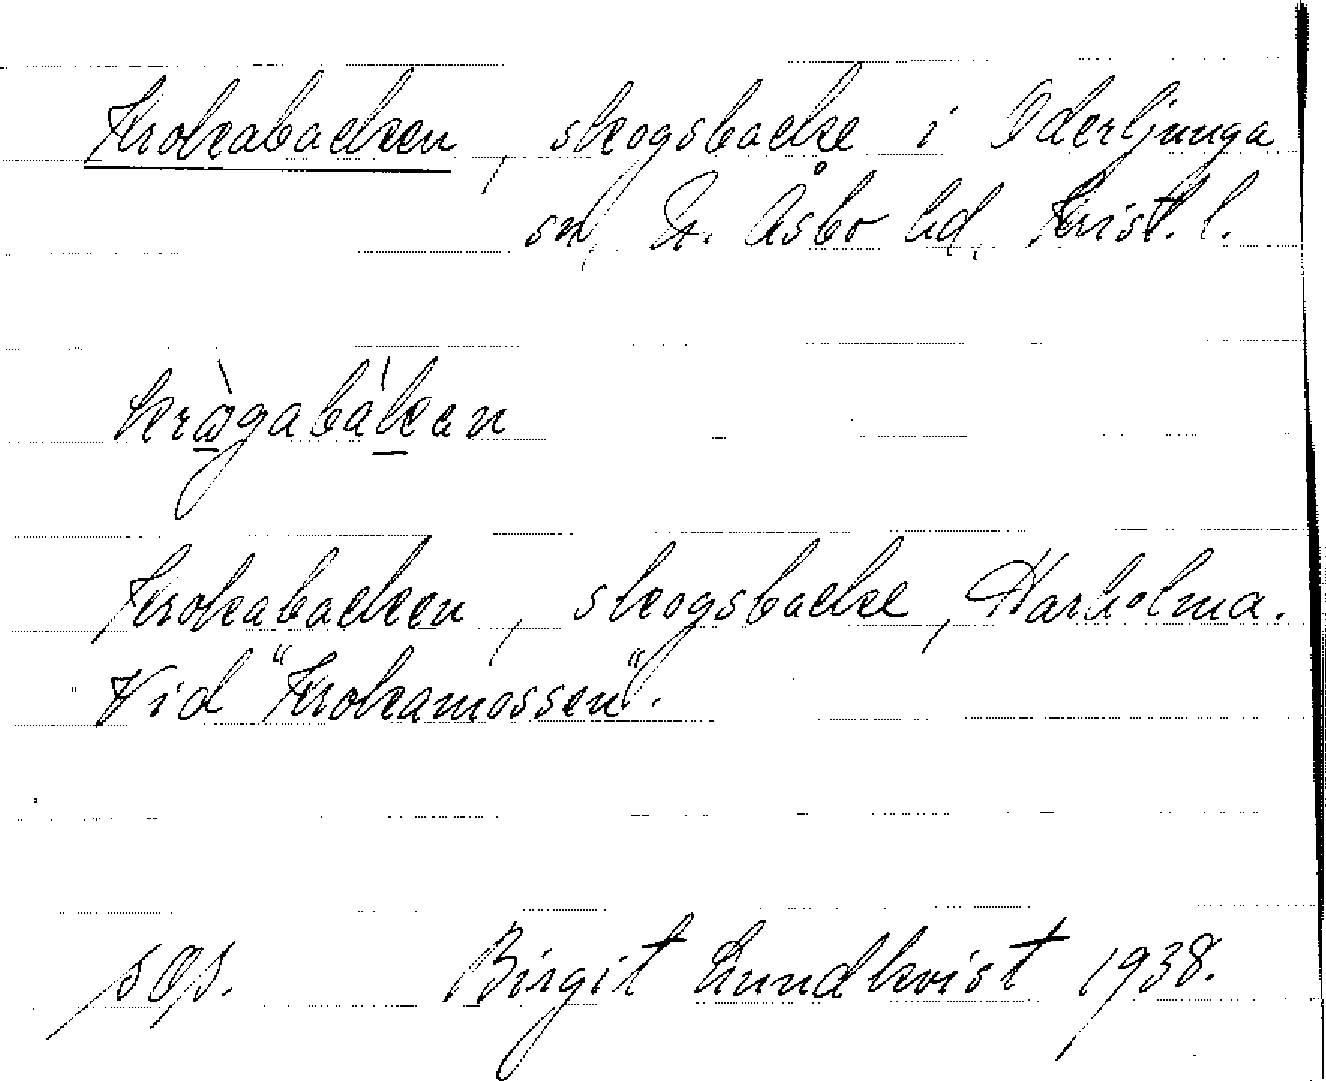 Krokabacken, skogsbacke i Oderljunga
sn, N. Åsbo hd, Krist. l.
krågabàkan
Krokabacken, skogsbacke, Harholma.
Vid "Krokamossen".
Birgit Lundkvist 1938.